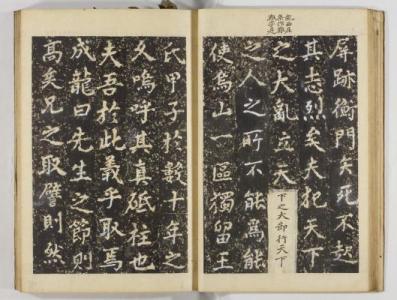 屏跡衡門矢死不起
其志烈矣夫犯天下
之大亂立天
下之大節行天下
之人之所不能為能
使烏山一區獨留王
氏甲子於數十年之
久嗚呼其真砥柱也
夫吾於此義乎取焉
成龍曰先生之節則
高矣兄之取譬則然